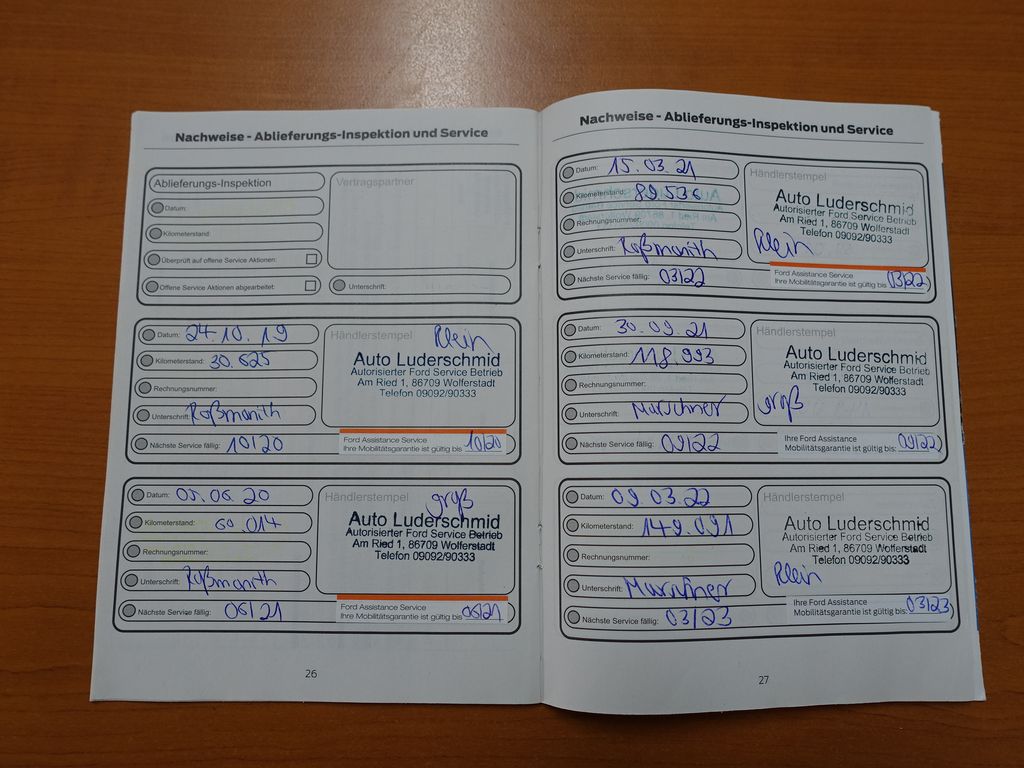 Nachweise - Ablieferungs-Inspektion und Service
Ablieferungs-Inspektion
Datum:
Kilometerstand:
Überprüft auf offene Service Aktionen:
Offene Service Aktionen abgearbeitet:
Vertragspartner
Unterschrift:
Datum: 24.10.19
Kilometerstand: 30.625
Rechnungsnummer:
Unterschrift: Roßmanith
Nächste Service fällig: 10/20
Händlerstempel Klein
Auto Luderschmid
Autorisierter Ford Service Betrieb
Am Ried 1, 86709 Wolferstadt
Telefon 09092/90333
Ford Assistance Service
Ihre Mobilitätsgarantie ist gültig bis: 10/20
Datum: 05.06.20
Kilometerstand: 60.014
Rechnungsnummer:
Unterschrift: Roßmanith
Nächste Service fällig: 06/21
Händlerstempel groß
Auto Luderschmid
Autorisierter Ford Service Betrieb
Am Ried 1, 86709 Wolferstadt
Telefon 09092/90333
Ford Assistance Service
Ihre Mobilitätsgarantie ist gültig bis: 06/21
26
Nachweise - Ablieferungs-Inspektion und Service
Datum: 15.03.21
Kilometerstand: 89.536
Rechnungsnummer:
Unterschrift: Roßmanith
Nächste Service fällig: 03/22
Händlerstempel
Auto Luderschmid
Autorisierter Ford Service Betrieb
Am Ried 1, 86709 Wolferstadt
Telefon 09092/90333
Klein
Ford Assistance Service
Ihre Mobilitätsgarantie ist gültig bis: 03/22
Datum: 30.09.21
Kilometerstand: 118.993
Rechnungsnummer:
Unterschrift: Marschner
Nächste Service fällig: 09/22
Händlerstempel
Auto Luderschmid
Autorisierter Ford Service Betrieb
Am Ried 1, 86709 Wolferstadt
Telefon 09092/90333
groß
Ihre Ford Assistance
Mobilitätsgarantie ist gültig bis: 09/22
Datum: 09.03.22
Kilometerstand: 149.091
Rechnungsnummer:
Unterschrift: Marschner
Nächste Service fällig: 03/23
Händlerstempel
Auto Luderschmid
Autorisierter Ford Service Betrieb
Am Ried 1, 86709 Wolferstadt
Telefon 09092/90333
Klein
Ihre Ford Assistance
Mobilitätsgarantie ist gültig bis: 03/23
27